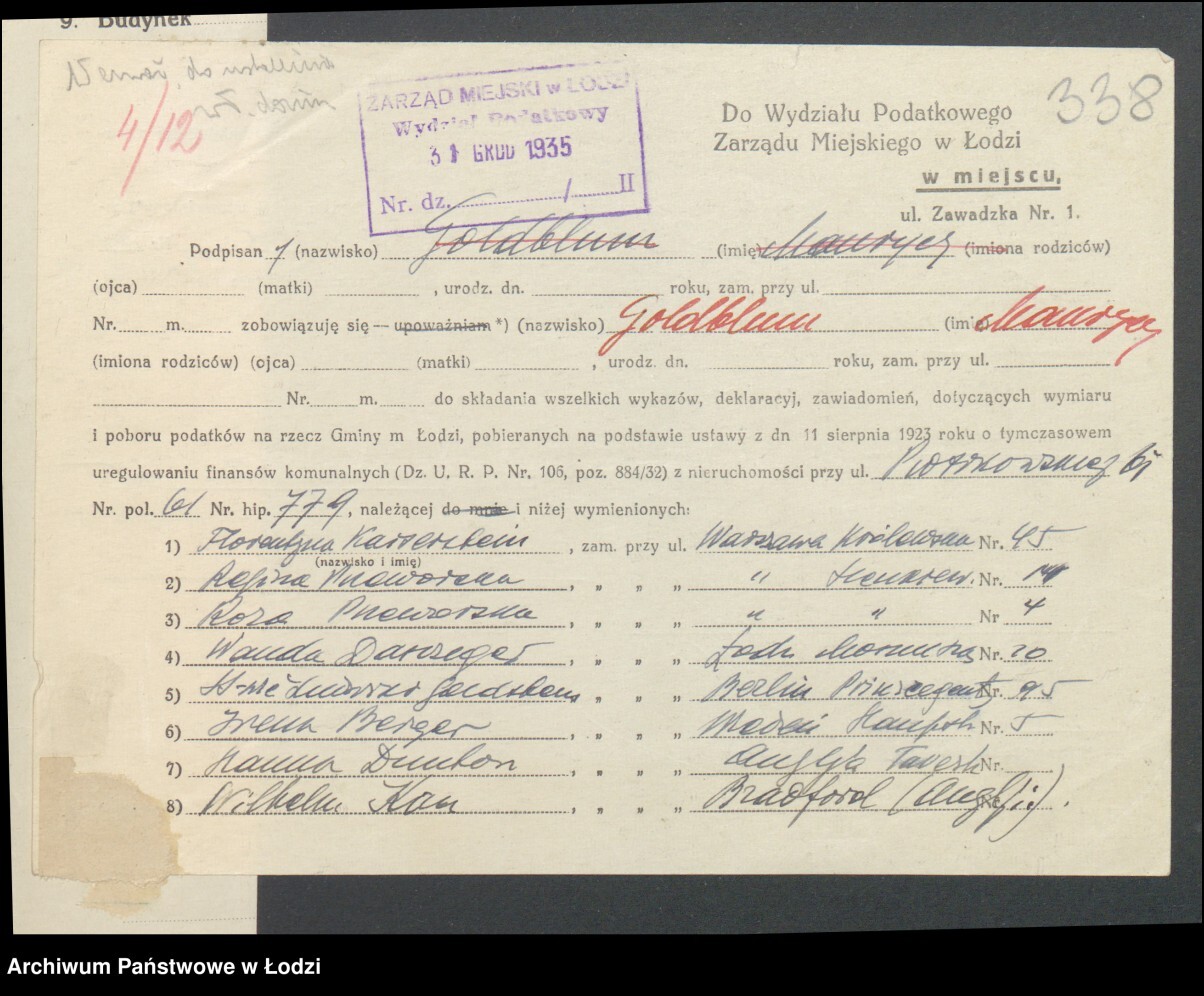 9. Budynek
4/12
ZARZĄD MIEJSKI w ŁODZI
Wydział Podatkowy
31 GRUD 1935
Nr. dz. / II
338
Do Wydziału Podatkowego
Zarządu Miejskiego w Łodzi
w miejscu,
ul. Zawadzka Nr. 1.
Podpisan y (nazwisko) Goldblum (imię) Maurycy (imiona rodziców)
(ojca) (matki) , urodz. dn. roku, zam. przy ul.
Nr. m. zobowiązuję się — upoważniam *) (nazwisko) Goldblum (imię) Maurycy
(imiona rodziców) (ojca) (matki) , urodz. dn. roku, zam. przy ul.
Nr. m. do składania wszelkich wykazów, deklaracyj, zawiadomień, dotyczących wymiaru
i poboru podatków na rzecz Gminy m Łodzi, pobieranych na podstawie ustawy z dn 11 sierpnia 1923 roku o tymczasowem
uregulowaniu finansów komunalnych (Dz. U. R. P. Nr. 106, poz. 884/32) z nieruchomości przy ul. Piotrkowskiej 61
Nr. pol. 61 Nr. hip. 779, należącej do mnie i niżej wymienionych:
1) Florentyna Kaiserstein , zam. przy ul. Warszawa Królewska Nr. 45
(nazwisko i imię)
2) Regina , „ „ „ „ Nr. 14
3) Roza , „ „ „ „ „ Nr 4
4) Wanda , „ „ „ Łódź Nr. 20
5) , „ „ „ Berlin Nr. 95
6) Irena Berger , „ „ „ Nr. 5
7) Hanna , „ „ „ Anglja Nr.
8) Wilhelm Kon , „ „ „ Bradford (Anglji) Nr.
Archiwum Państwowe w Łodzi